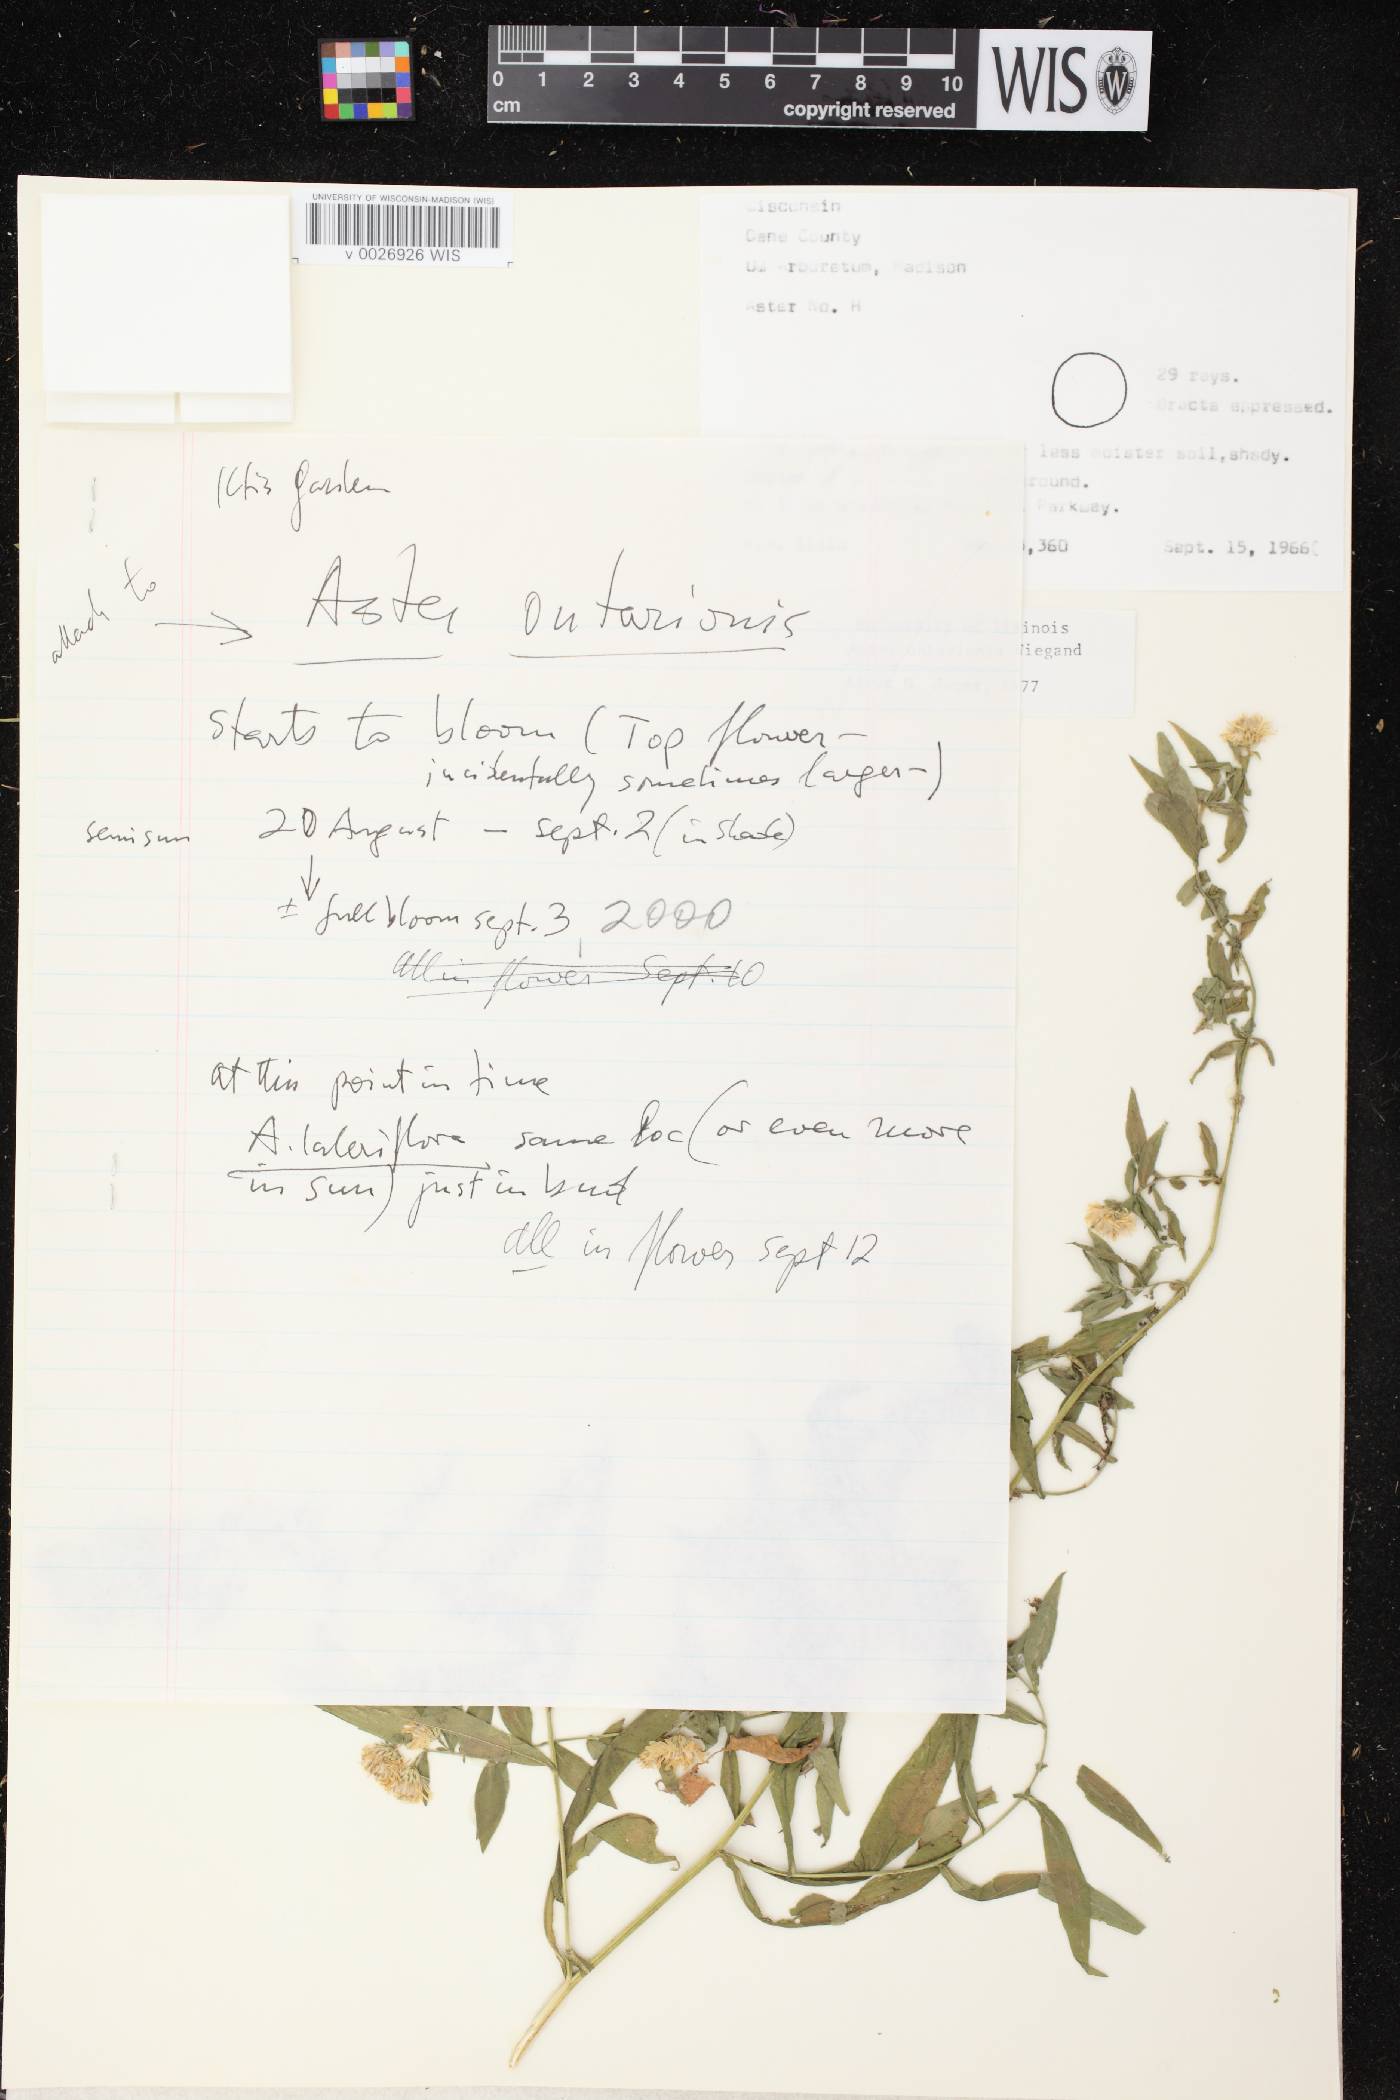 0 1 2 3 4 5 6 7 8 9 10
cm
copyright reserved
WIS
W
UNIVERSITY OF WISCONSIN-MADISON (WIS)
v 0026926 WIS
Wisconsin
Dane County
UW Arboretum, Madison
Aster No. H
29 rays.
Bracts appressed.
less moister soil, shady.
round.
Parkway.
,360 Sept. 15, 1966
inois
Wiegand
77
Iltis Garden
attach to → Aster ontarionis
starts to bloom (Top flower –
incidentally sometimes larger –)
semisun 20 August – sept. 2 (in shade)
↓
± full bloom sept. 3, 2000
All in flower Sept. 10
at this point in time
A. lateriflora same loc (or even more
in sun) just in bud
all in flower sept 12